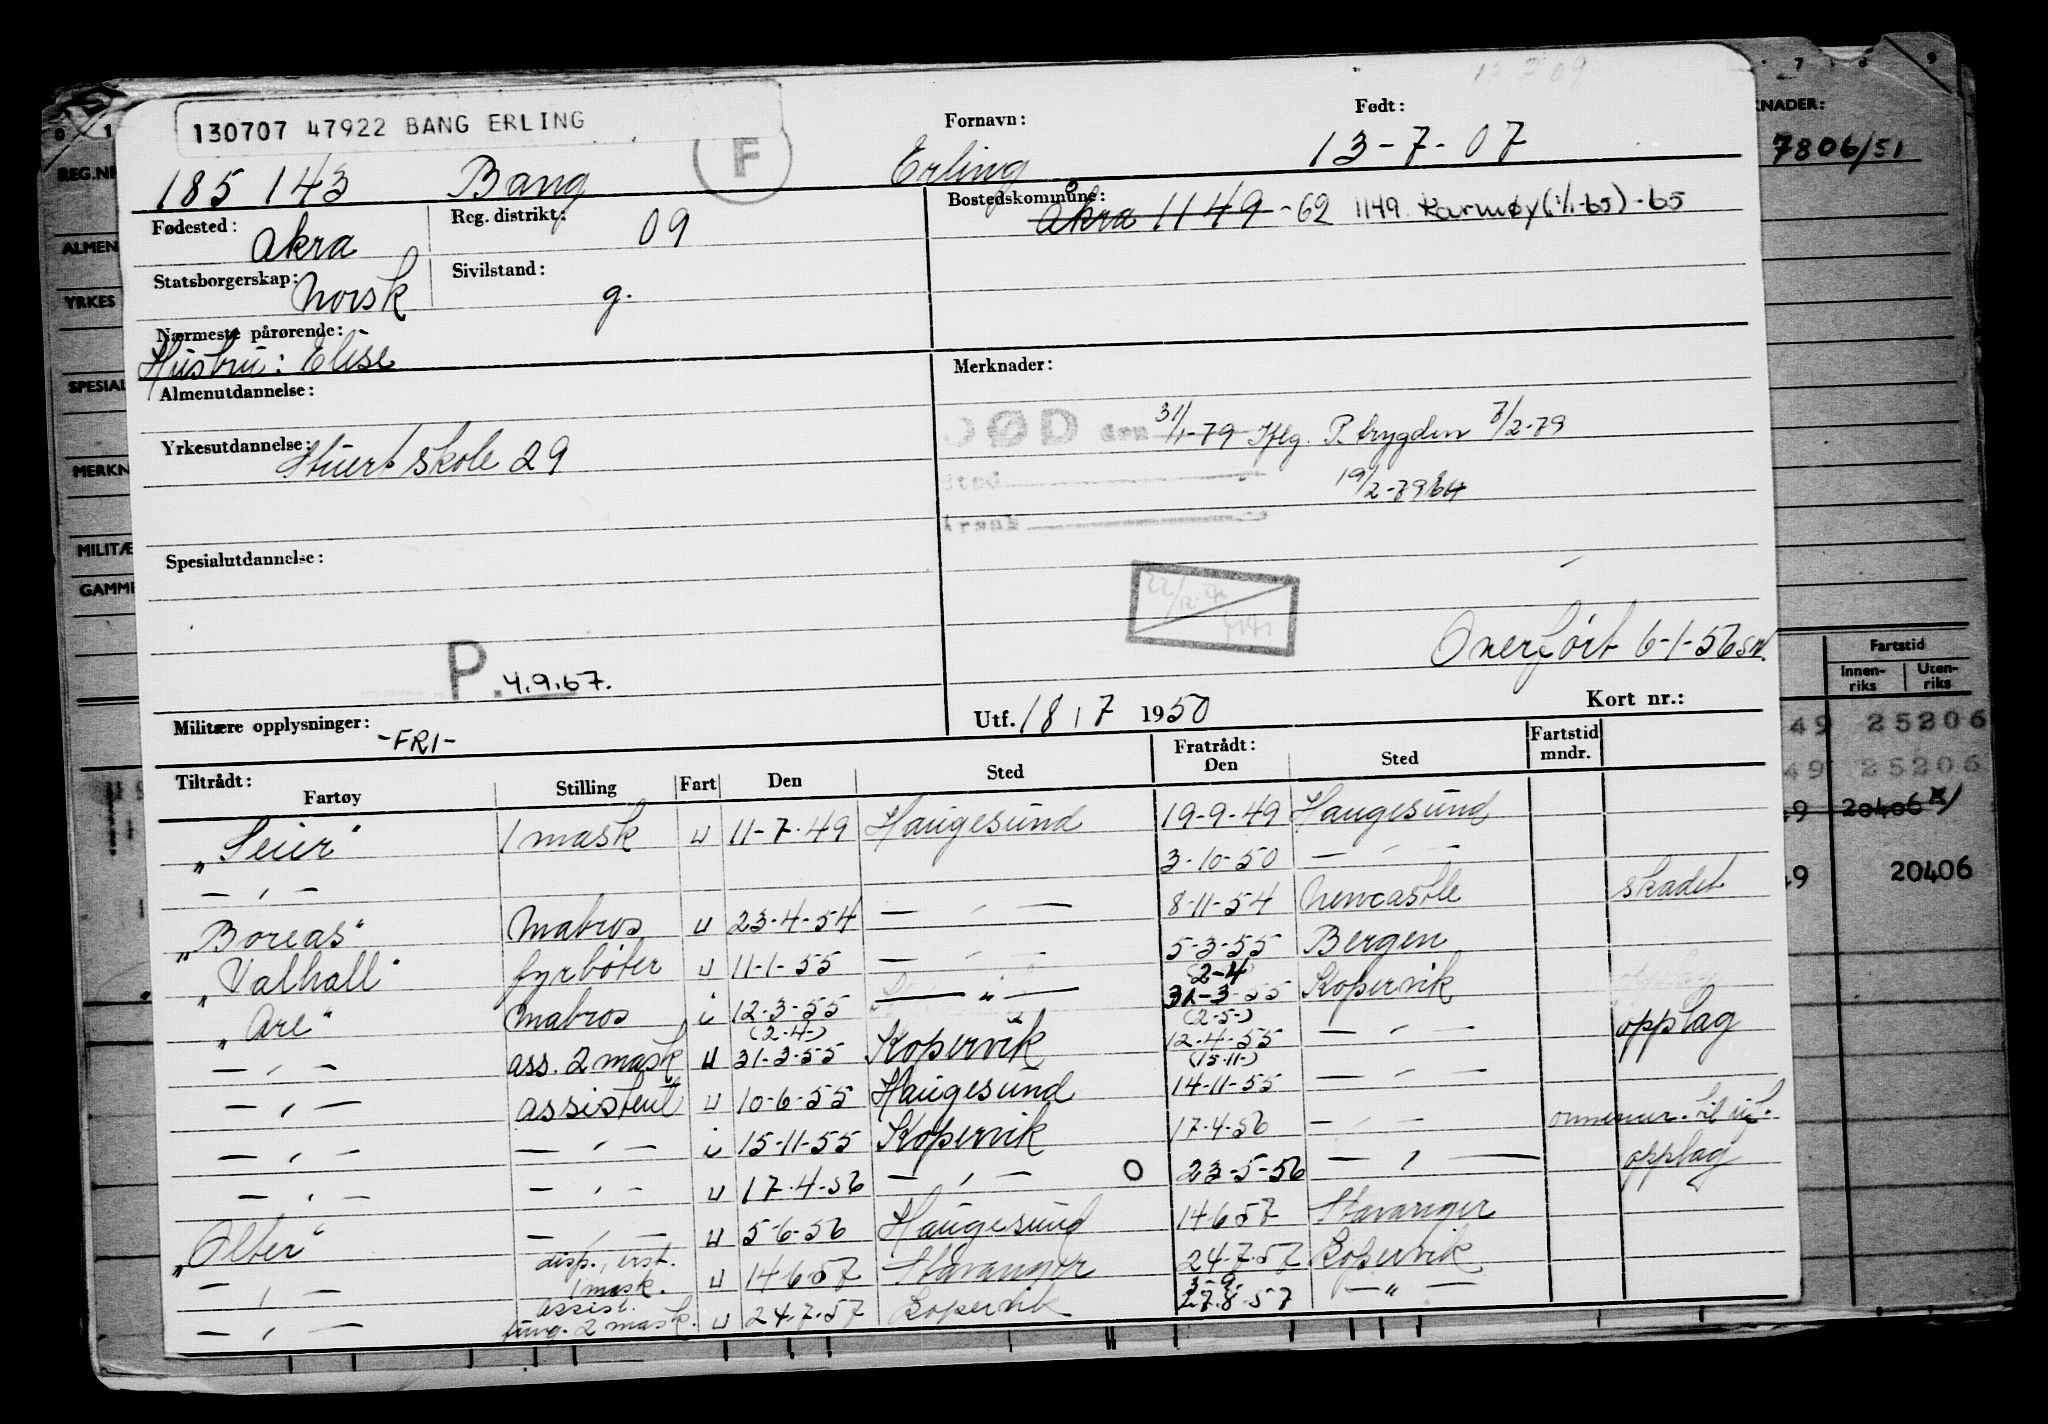 130707 47922 BANG ERLING
F
Fornavn:
Født:
185 143 Bang Erling 13-7-07
7806/51
Fødested: Akra
Reg. distrikt: 09
Bostedskommune: Åkra 1149 -62 1149 Karmøy (1/1-65) -65
Statsborgerskap: Norsk
Sivilstand: g.
Nærmeste pårørende:
Hustru: Elise
Almenutdannelse:
Merknader:
DØD den 31/1-79 Iflg. P. trygden 7/2-79
Yrkesutdannelse: Stuertskole 29
Sted
19/2-79
Årsak
Spesialutdannelse:
Overført 6-1-56
P. 4.9.67.
Militære opplysninger: -FRI-
Utf. 18 / 7 1950
Kort nr.:
Tiltrådt: Fartøy Stilling Fart Den Sted Fratrådt: Den Sted Fartstid mndr.
"Seier" 1 mask u 11-7-49 Haugesund 19-9-49 Haugesund
— " — 3-10-50 — " —
"Boreas" Matros u 23-4-54 — " — 8-11-54 Newcastle skadet
"Valhall" fyrbøter u 11-1-55 — " — 5-3-55 Bergen
"Are" Matros i 12-3-55 — " — (2-4 31-3-55 Kopervik
— " — ass. 2 mask u (2-4-) 31-3-55 Kopervik (2-5-) 12-4-55 — " — opplag
— " — assistent u 10-6-55 Haugesund (15-11-) 14-11-55 — " —
— " — — " — i 15-11-55 Kopervik 17-4-56 — " —
— " — — " — u 17-4-56 — " — O 23-5-56 — " — opplag
"Olter" — " — u 5-6-56 Haugesund 14-6-57 Stavanger
— " — disp., 1 mask. u 14-6-57 Stavanger 24-7-57 Kopervik
— " — assist. fung. 2 mask. u 24-7-57 Kopervik 3-9- 27-8-57 — " —
REG.NR
ALMEN
YRKES
SPESIAL
MERKN
MILITÆ
GAMME
KNADER:
Fartstid
Innenriks
Utenriks
49 25206
49 25206
49 20406 x)
49 20406